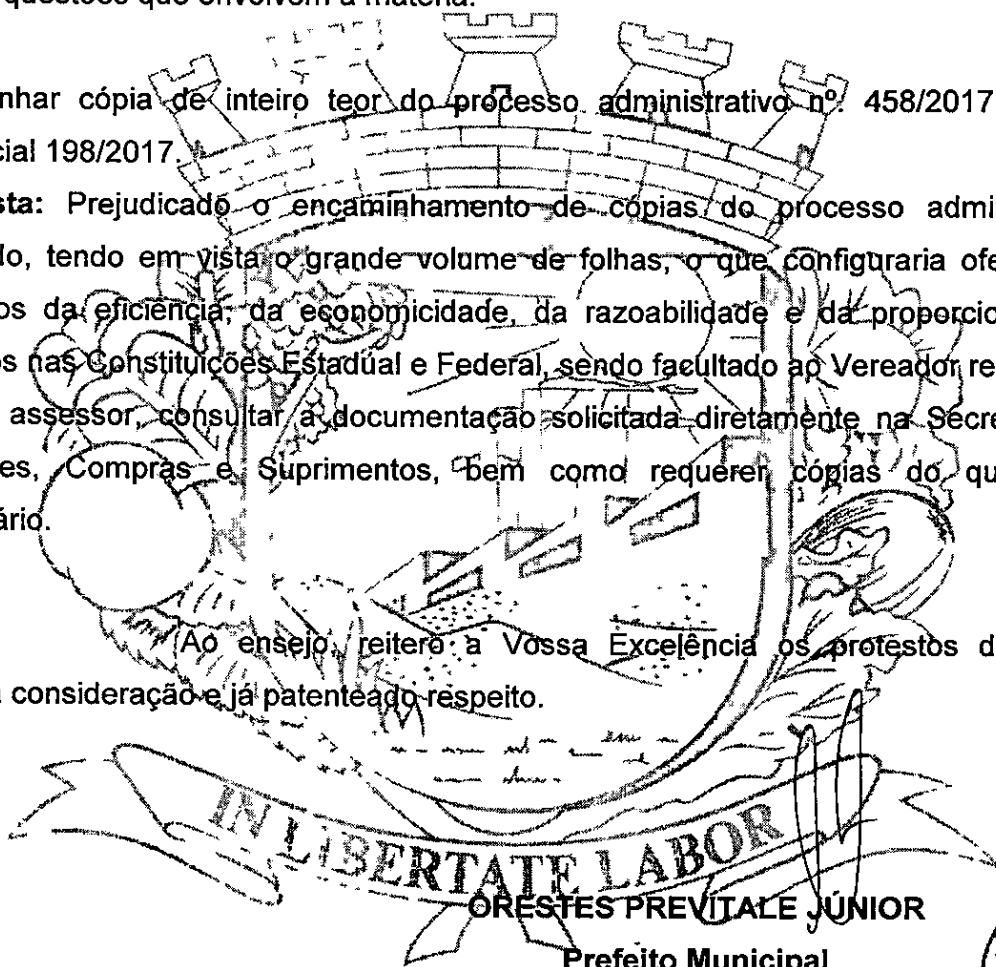 questões que envolvem a matéria.
nhar cópia de inteiro teor do processo administrativo nº. 458/2017
cial 198/2017.
sta: Prejudicado o encaminhamento de cópias do processo admi
do, tendo em vista o grande volume de folhas, o que configuraria ofe
os da eficiência, da economicidade, da razoabilidade e da proporcio
os nas Constituições Estadual e Federal, sendo facultado ao Vereador re
assessor, consultar a documentação solicitada diretamente na Secre
es, Compras e Suprimentos, bem como requerer cópias do qu
ário.
Ao ensejo, reitero a Vossa Excelência os protestos d
consideração e já patenteado respeito.
IN LIBERTATE LABOR
ORESTES PREVITALE JÚNIOR
Prefeito Municipal